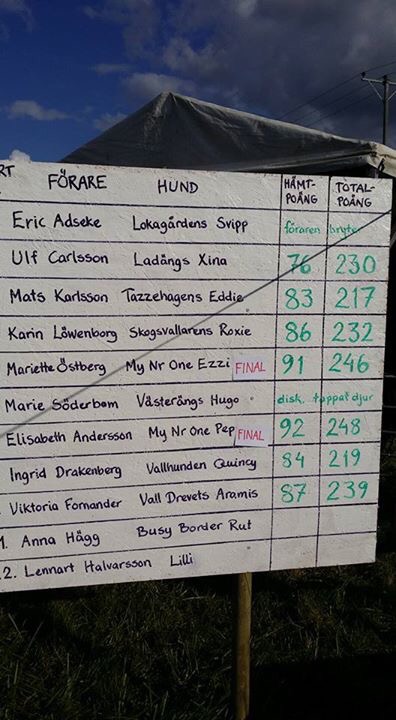 RT FÖRARE HUND HÄMT-POÄNG TOTAL-POÄNG
Eric Adseke Lokagårdens Svipp föraren bryter
Ulf Carlsson Ladängs Xina 76 230
Mats Karlsson Tazzehagens Eddie 83 217
Karin Löwenborg Skogsvallarens Roxie 86 232
Mariette Östberg My Nr One Ezzi FINAL 91 246
Marie Söderbom Västerängs Hugo disk. tappat djur
Elisabeth Andersson My Nr One Pep FINAL 92 248
Ingrid Drakenberg Vallhunden Quincy 84 219
Viktoria Fornander Vall Drevets Aramis 87 239
1. Anna Hägg Busy Border Rut
2. Lennart Halvarsson Lilli